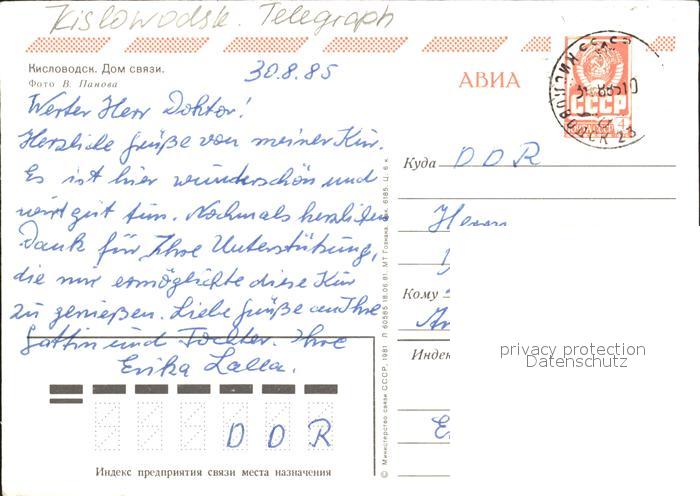 Kislowodsk. Telegraph
Кисловодск. Дом связи.
Фото В. Панова
30.8.85
АВИА
СССР
Werter Herr Doktor!
Herzliche Grüße von meiner Kur.
Es ist hier wunderschön und
wird gut tun. Nochmals herzlichen
Dank für Ihre Unterstützung,
die mir ermöglichte diese Kur
zu genießen. Liebe Grüße an Ihre
Gattin und Tochter. Ihre
Erika Lalla.
Куда DDR
Herrn
Кому
Индек
privacy protection
Datenschutz
DDR
Индекс предприятия связи места назначения
© Министерство связи СССР, 1981